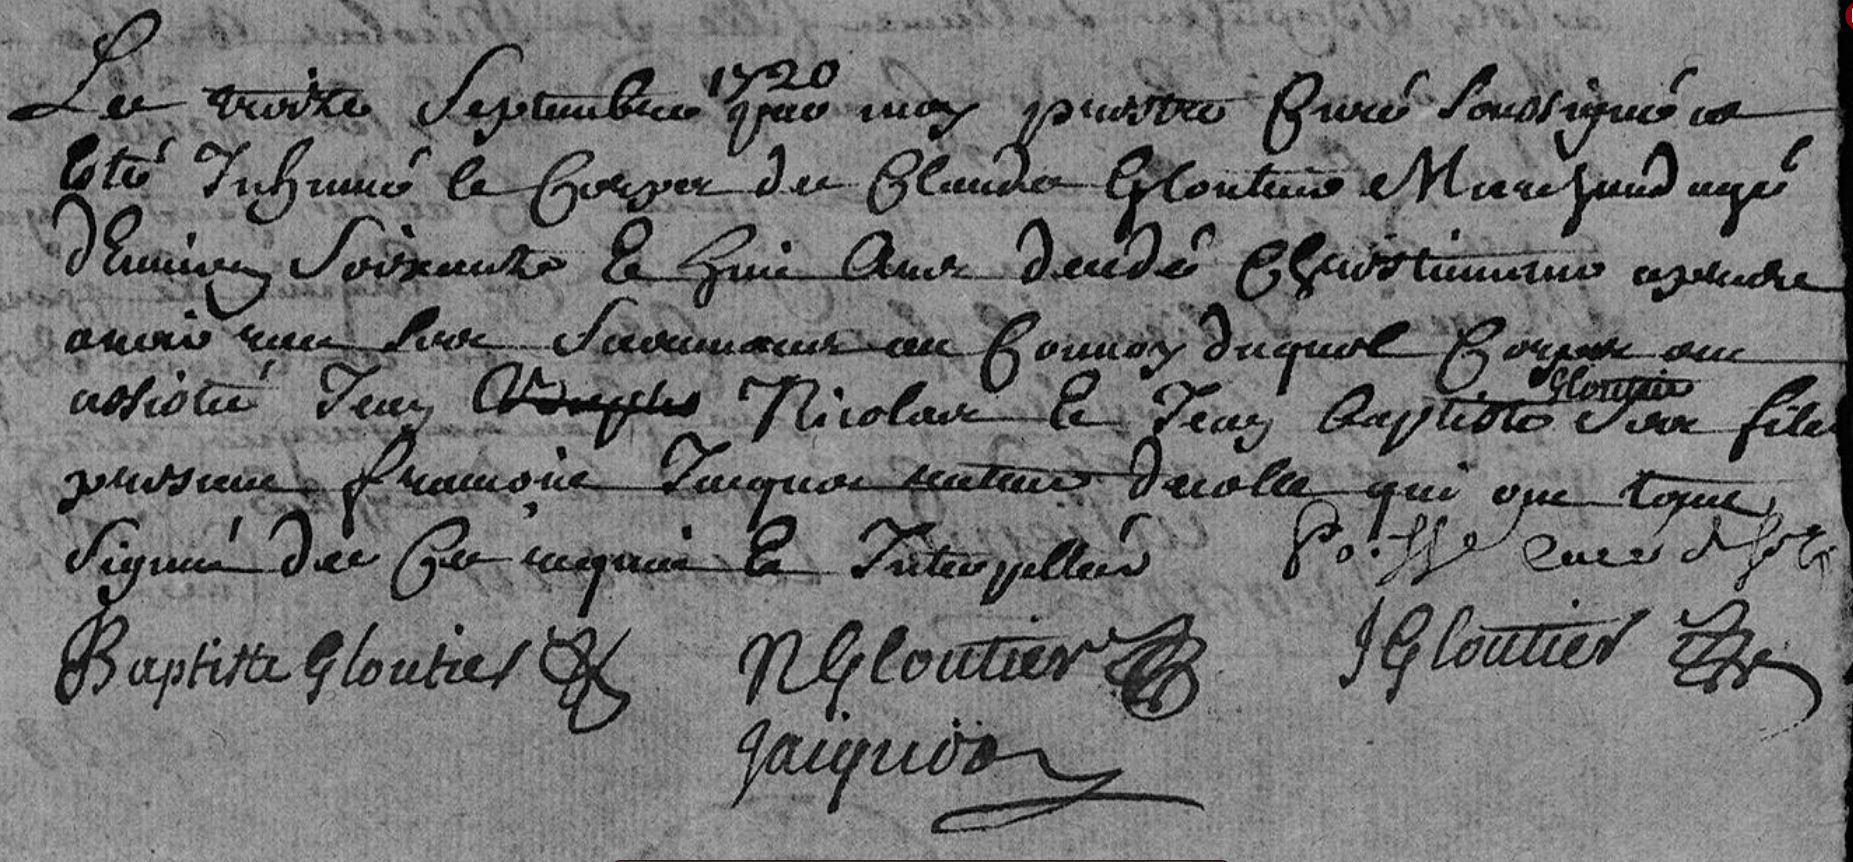 1720
Le treize Septembre par moy prestre Curé Soussigné a
Esté Inhumé le Corps de Claude Gloutier Marchand agé
d'Environ Soixante Et huit Ans decedé Chrestiennement apres
avoir receu Ses Sacremens au Convoy duquel Corps ont
Gloutier
assisté Jean Nicolas Et Jean Baptiste Ses fils
presens francois Jacques recteur descolle qui ont tous
Signé de Ce requis Et Interpellés curé
Baptiste Gloutier N Gloutier J Gloutier